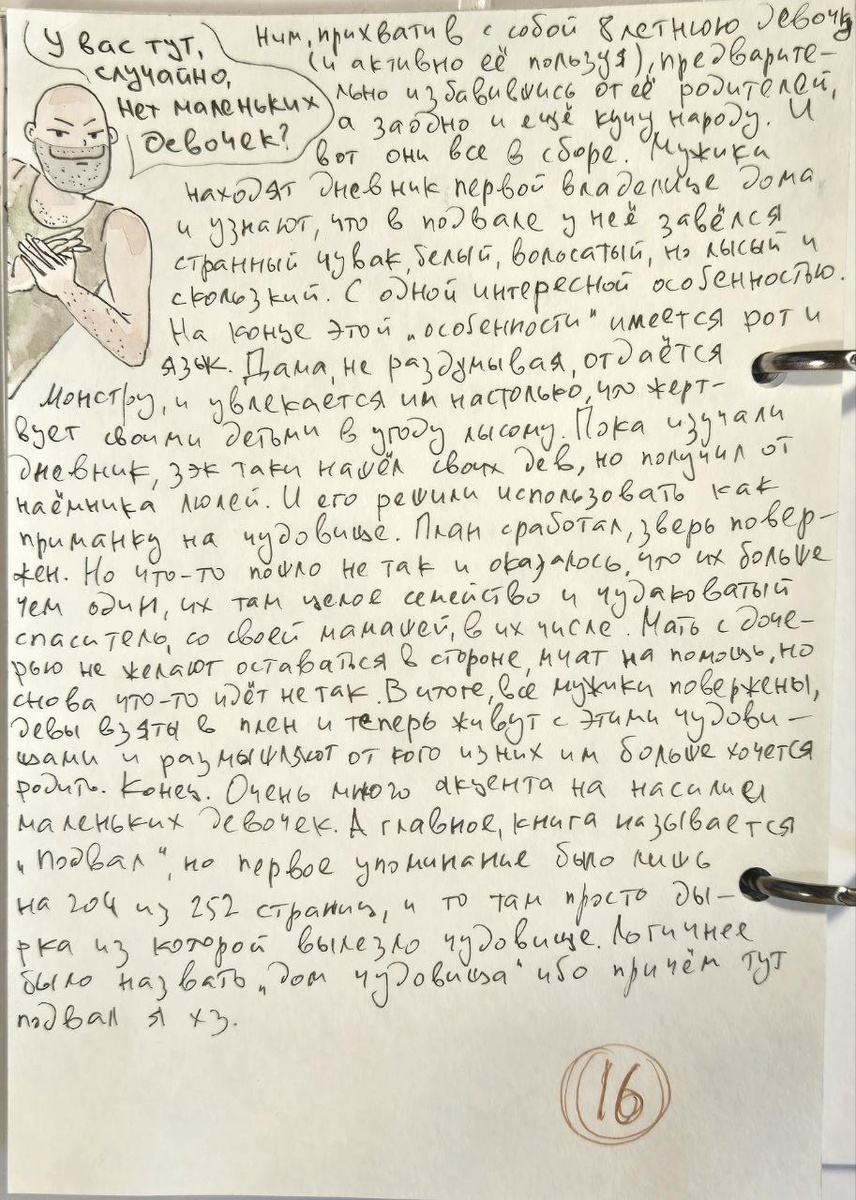 У вас тут,
случайно,
нет маленьких
девочек?
ним, прихватив с собой 8 летнюю девочку
(и активно её пользуя), предварите-
льно избавившись от её родителей,
а заодно и ещё кучу народу. И
вот они все в сборе. Мужики
находят дневник первой владелице дома
и узнают, что в подвале у неё завёлся
странный чувак, белый, волосатый, но лысый и
скользкий. С одной интересной особенностью.
На конце этой „особенности" имеется рот и
язык. Дама, не раздумывая, отдаётся
монстру, и увлекается им настолько, что жерт-
вует своими детьми в угоду лысому. Пока изучали
дневник, зэк таки нашёл своих дев, но получил от
наёмника люлей. И его решили использовать как
приманку на чудовище. План сработал, зверь повер-
жен. Но что-то пошло не так и оказалось, что их больше
чем один, их там целое семейство и чудаковатый
спаситель, со своей мамашей, в их числе. Мать с доче-
рью не желают оставаться в стороне, мчат на помощь, но
снова что-то идёт не так. В итоге, все мужики повержены,
девы взяты в плен и теперь живут с этими чудови-
щами и размышляют от кого из них им больше хочется
родить. Конец. Очень много акцента на насилии
маленьких девочек. А главное, книга называется
„Подвал", но первое упоминание было лишь
на 204 из 252 страниц, и то там просто ды-
рка из которой вылезло чудовище. Логичнее
было назвать „дом чудовища" ибо причём тут
подвал я хз.
16